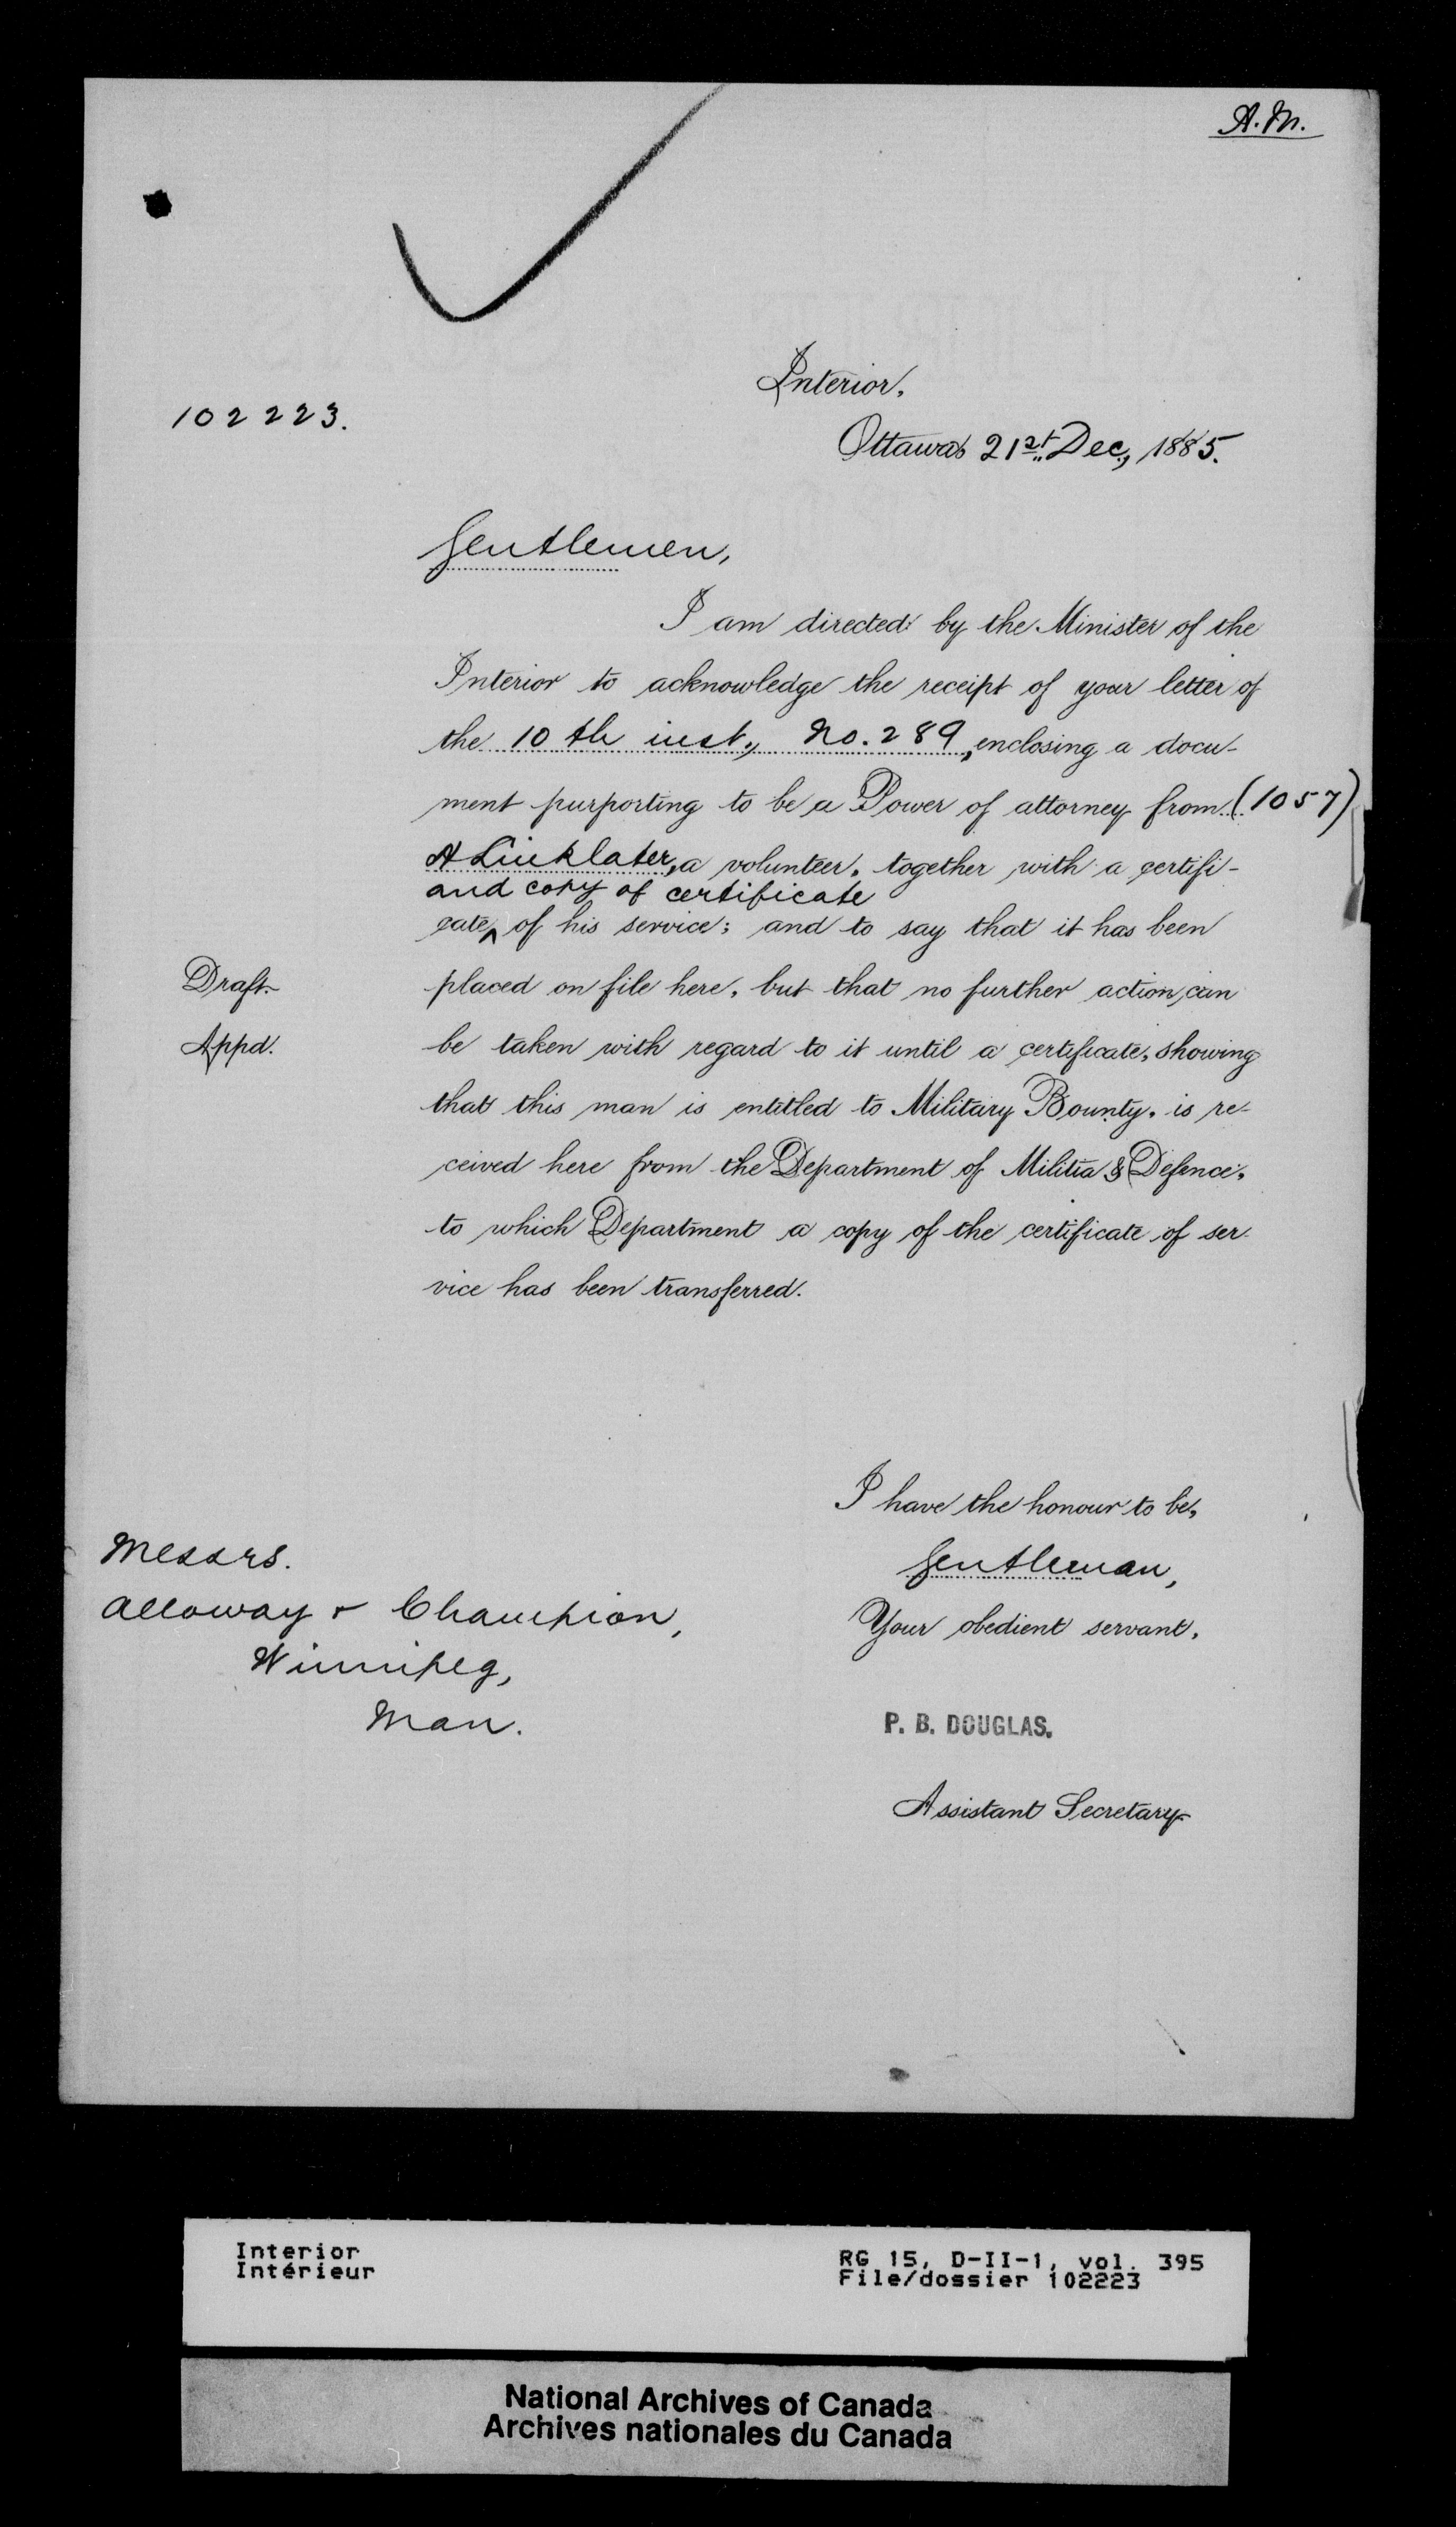 A. M.
Interior,
102223.
Ottawa 21st Dec., 1885.
Gentlemen,
I am directed by the Minister of the
Interior to acknowledge the receipt of your letter of
the 10th inst., No. 289, enclosing a docu-
ment purporting to be a Power of attorney from (1057)
A Linklater, a volunteer, together with a certifi-
and copy of certificate
cate ^ of his service; and to say that it has been
Draft. placed on file here, but that no further action can
Appd. be taken with regard to it until a certificate, showing
that this man is entitled to Military Bounty, is re-
ceived here from the Department of Militia & Defence,
to which Department a copy of the certificate of ser-
vice has been transferred.
I have the honour to be,
Gentleman,
Your obedient servant,
P. B. DOUGLAS.
Assistant Secretary
Messrs.
Alloway & Champion,
Winnipeg,
Man.
Interior
Intérieur
RG 15, D-II-1, vol. 395
File/dossier 102223
National Archives of Canada
Archives nationales du Canada